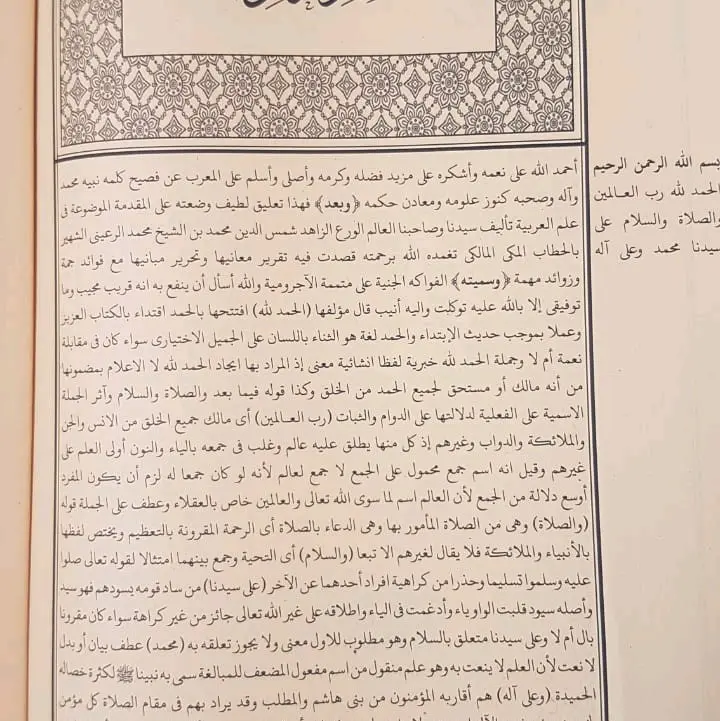 أحمد الله على نعمه وأشكره على مزيد فضله وكرمه وأصلى وأسلم على المعرب عن فصيح كلمه نبيه محمد
وآله وصحبه كنوز علومه ومعادن حكمه ﴿وبعد﴾ فهذا تعليق لطيف وضعته على المقدمة الموضوعة فى
علم العربية تأليف سيدنا وصاحبنا العالم الورع الزاهد شمس الدين محمد بن الشيخ محمد الرعينى الشهير
بالحطاب المكى المالكى تغمده الله برحمته قصدت فيه تقرير معانيها وتحرير مبانيها مع فوائد جمة
وزوائد مهمة ﴿وسميته﴾ الفواكه الجنية على متممة الآجرومية والله أسأل أن ينفع به انه قريب مجيب وما
توفيقى إلا بالله عليه توكلت واليه أنيب قال مؤلفها (الحمد لله) افتتحها بالحمد اقتداء بالكتاب العزيز
وعملا بموجب حديث الإبتداء والحمد لغة هو الثناء باللسان على الجميل الاختيارى سواء كان فى مقابلة
نعمة أم لا وجملة الحمد لله خبرية لفظا انشائية معنى إذ المراد بها ايجاد الحمد لله لا الاعلام بمضمونها
من أنه مالك أو مستحق لجميع الحمد من الخلق وكذا قوله فيما بعد والصلاة والسلام وآثر الجملة
الاسمية على الفعلية لدلالتها على الدوام والثبات (رب العـالمين) أى مالك جميع الخلق من الانس والجن
والملائكة والدواب وغيرهم إذ كل منها يطلق عليه عالم وغلب فى جمعه بالياء والنون أولى العلم على
غيرهم وقيل انه اسم جمع محمول على الجمع لا جمع لعالم لأنه لو كان جمعا له لزم أن يكون المفرد
أوسع دلالة من الجمع لأن العالم اسم لما سوى الله تعالى والعالمين خاص بالعقلاء وعطف على الجملة قوله
(والصلاة) وهى من الصلاة المأمور بها وهى الدعاء بالصلاة أى الرحمة المقرونة بالتعظيم ويختص لفظها
بالأنبياء والملائكة فلا يقال لغيرهم الا تبعا (والسلام) أى التحية وجمع بينهما امتثالا لقوله تعالى صلوا
عليه وسلموا تسليما وحذرا من كراهية افراد أحدهما عن الآخر (على سيدنا) من ساد قومه يسودهم فهو سيد
وأصله سيود قلبت الواو ياء وأدغمت فى الياء واطلاقه على غير الله تعالى جائز من غير كراهة سواء كان مقرونا
بال أم لا وعلى سيدنا متعلق بالسلام وهو مطلوب للاول معنى ولا يجوز تعلقه به (محمد) عطف بيان أو بدل
لا نعت لأن العلم لا ينعت به وهو علم منقول من اسم مفعول المضعف للمبالغة سمى به نبينا ﷺ لكثرة خصاله
الحميدة (وعلى آله) هم أقاربه المؤمنون من بنى هاشم والمطلب وقد يراد بهم فى مقام الصلاة كل مؤمن
بسم الله الرحمن الرحيم
الحمد لله رب العـالمين
والصلاة والسلام على
سيدنا محمد وعلى آله